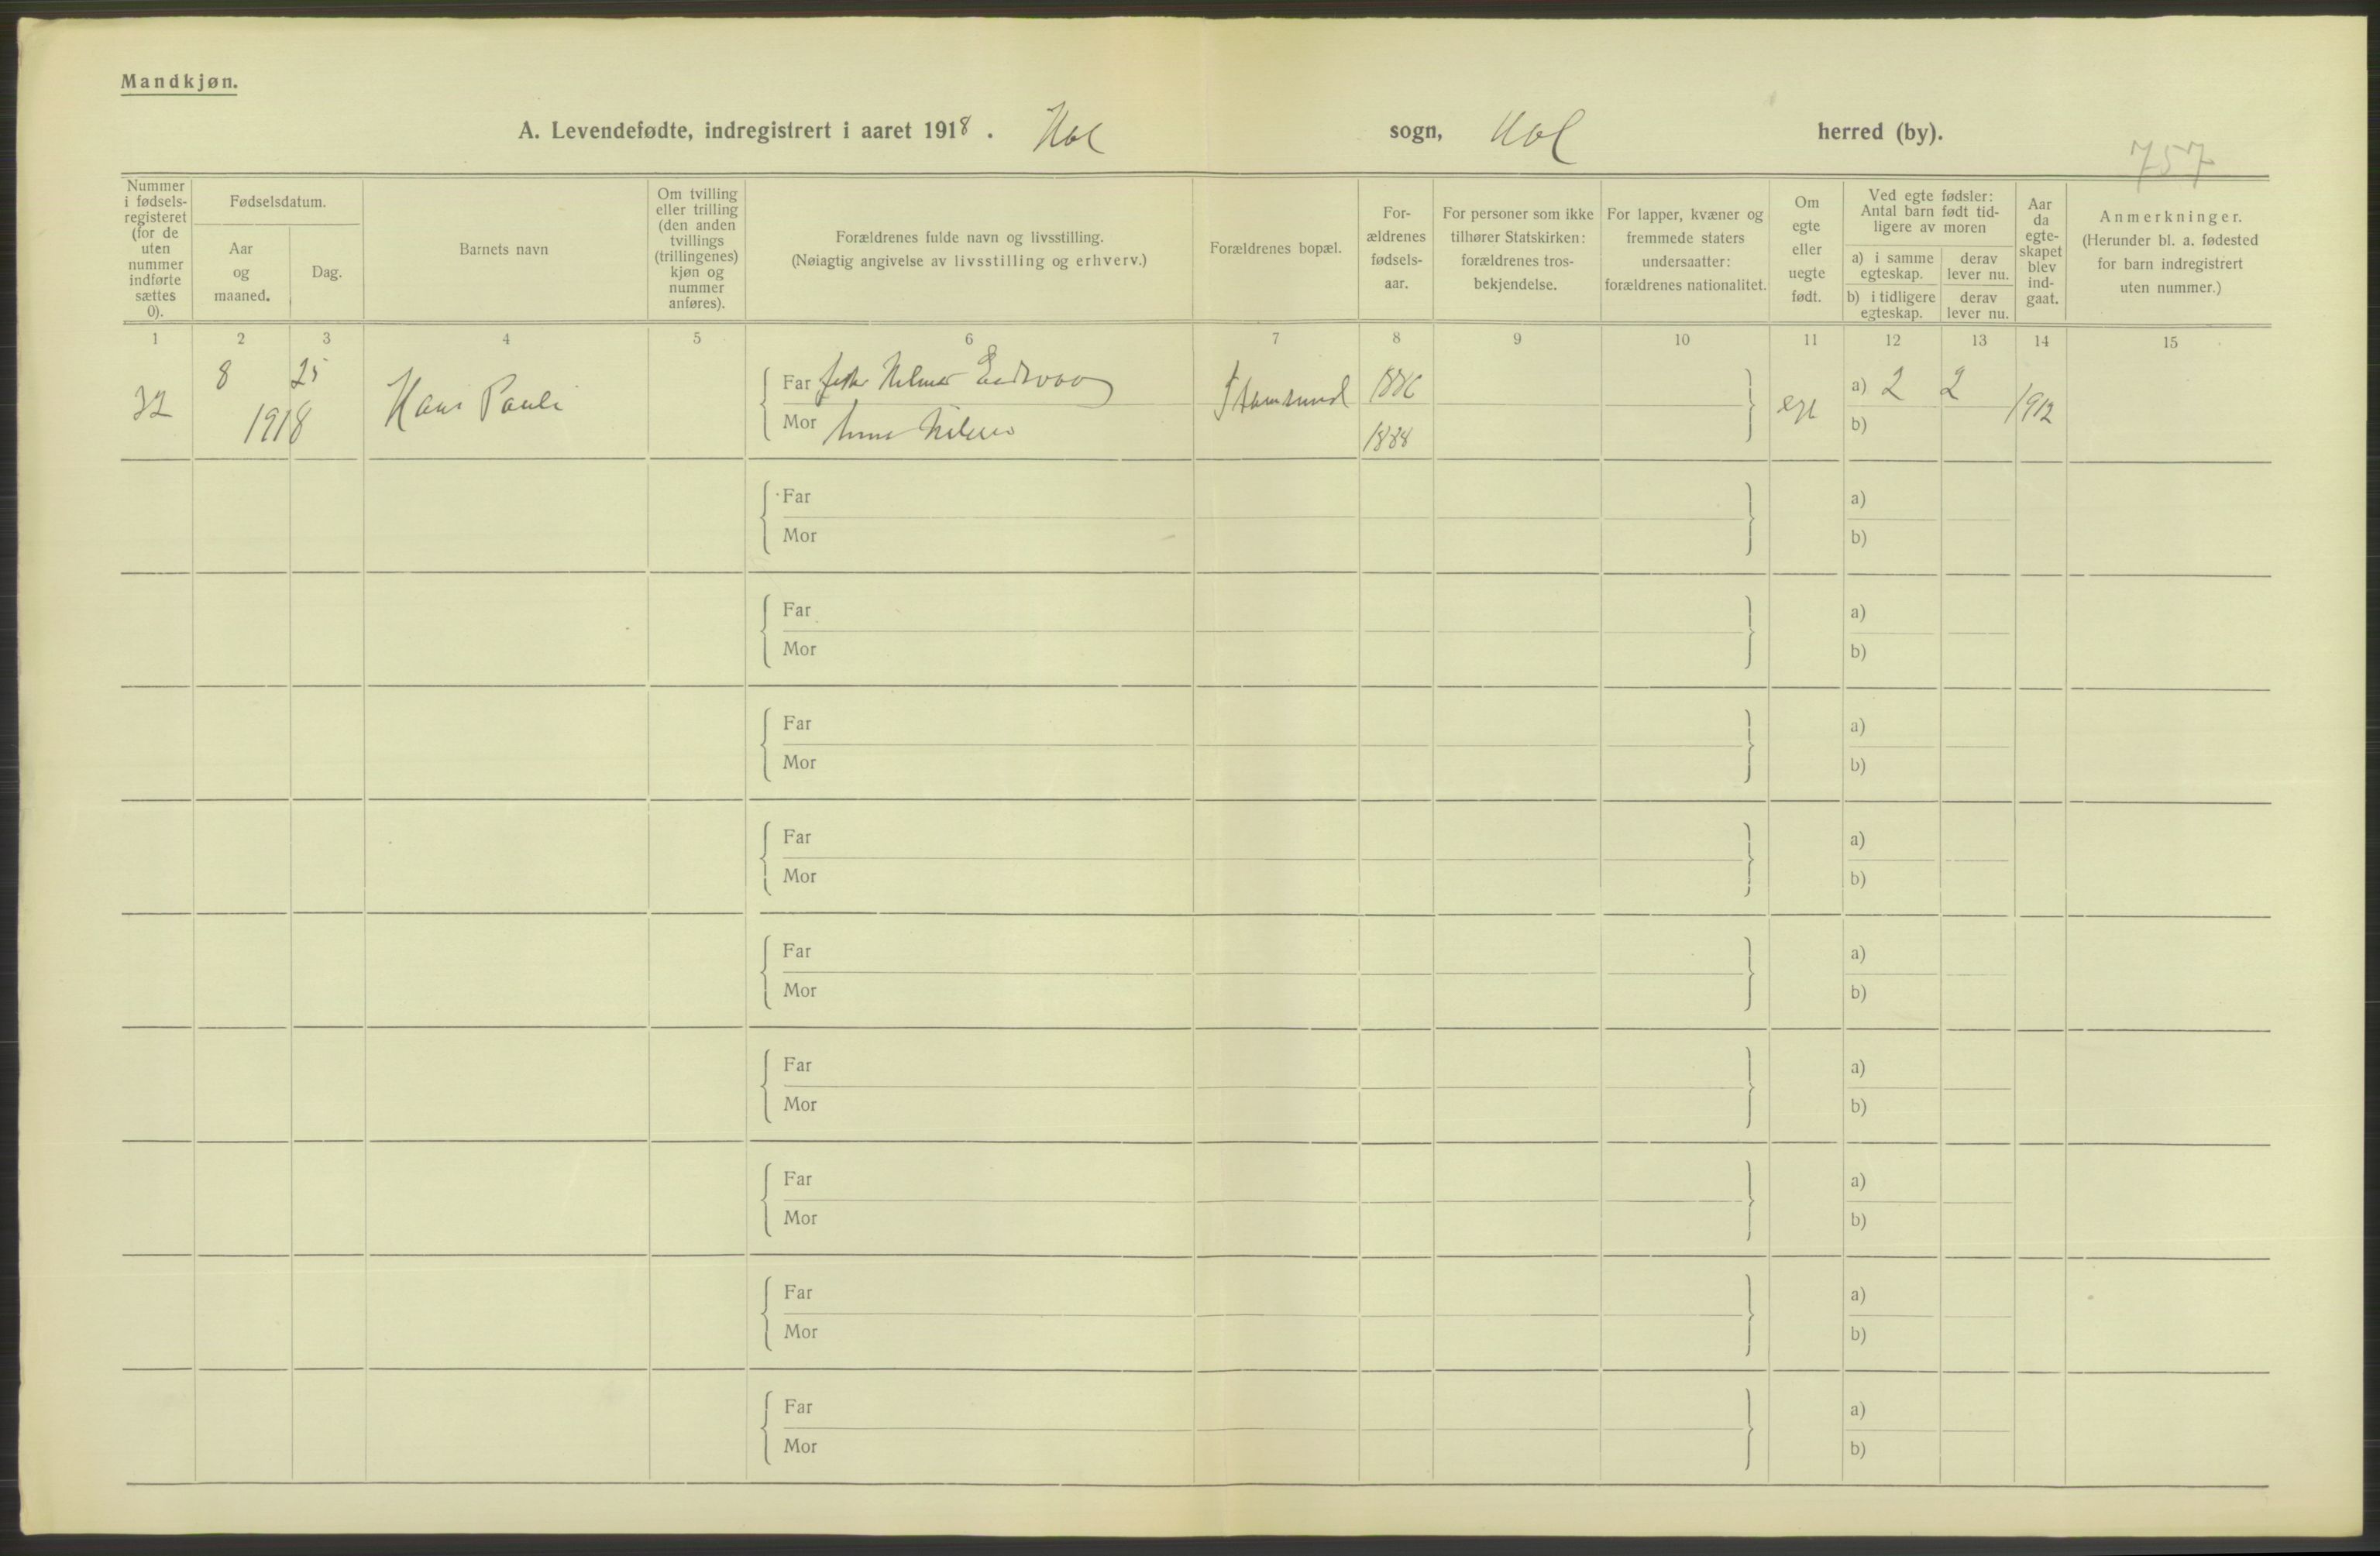 Mandkjøn.
A. Levendefødte, indregistrert i aaret 1918. Hol sogn, Hol herred (by).
757
Nummer i fødsels-registeret (for de uten nummer indførte sættes 0).
Fødselsdatum.
Aar og maaned.
Dag.
Barnets navn
Om tvilling eller trilling (den anden tvillings (trillingenes) kjøn og nummer anføres).
Forældrenes fulde navn og livsstilling.
(Nøiagtig angivelse av livsstilling og erhverv.)
Forældrenes bopæl.
For-ældrenes fødsels-aar.
For personer som ikke tilhører Statskirken: forældrenes tros-bekjendelse.
For lapper, kvæner og fremmede staters undersaatter: forældrenes nationalitet.
Om egte eller uegte født.
Ved egte fødsler: Antal barn født tid-ligere av moren
a) i samme egteskap.
derav lever nu.
b) i tidligere egteskap.
derav lever nu.
Aar da egte-skapet blev ind-gaat.
Anmerkninger.
(Herunder bl. a. fødested for barn indregistrert uten nummer.)
1 2 3 4 5 6 7 8 9 10 11 12 13 14 15
32 8 25 1918 Hans Pauli
Far
Mor
Stamsund 1886
1888
egte
a) 2 2
b)
1912
Far a)
Mor b)
Far a)
Mor b)
Far a)
Mor b)
Far a)
Mor b)
Far a)
Mor b)
Far a)
Mor b)
Far a)
Mor b)
Far a)
Mor b)
Far a)
Mor b)